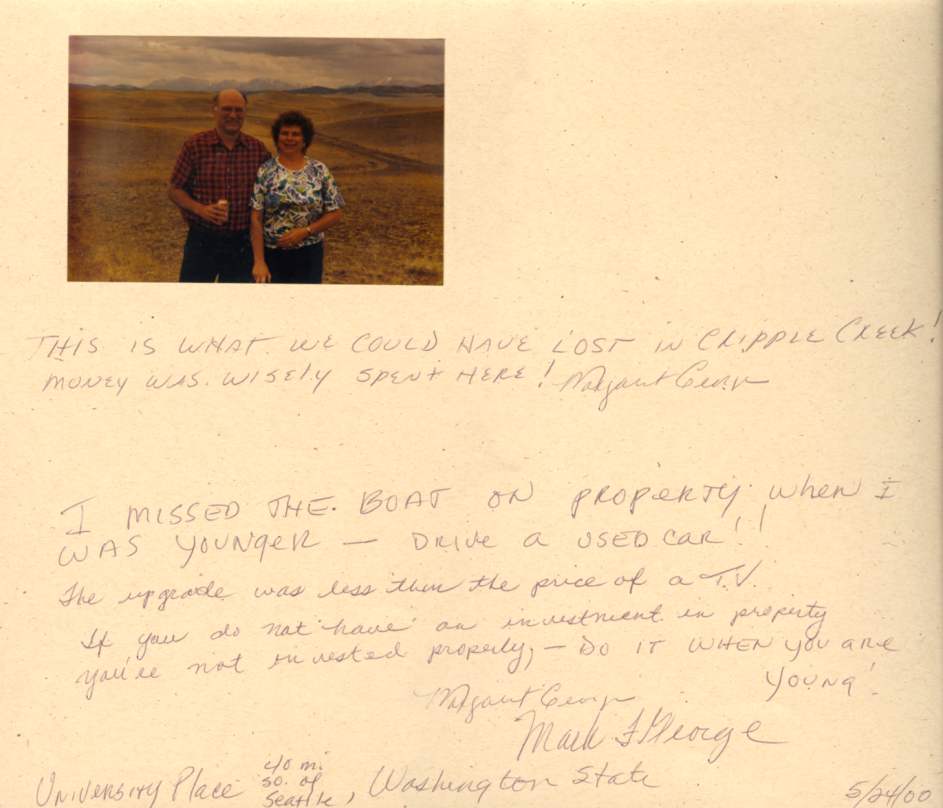 THIS IS WHAT WE COULD HAVE LOST IN CRIPPLE CREEK!
MONEY WAS WISELY SPENT HERE! Margaret George
I MISSED THE BOAT ON PROPERTY when I
WAS YOUNGER — DRIVE A USED CAR!!
The upgrade was less then the price of a T.V.
If you do not have an investment in property
you're not invested properly, — DO IT WHEN YOU ARE
YOUNG!
Margaret George
Mark F George
UNIVERSITY PLACE 40 mi so. of Seattle, Washington State
5/24/00